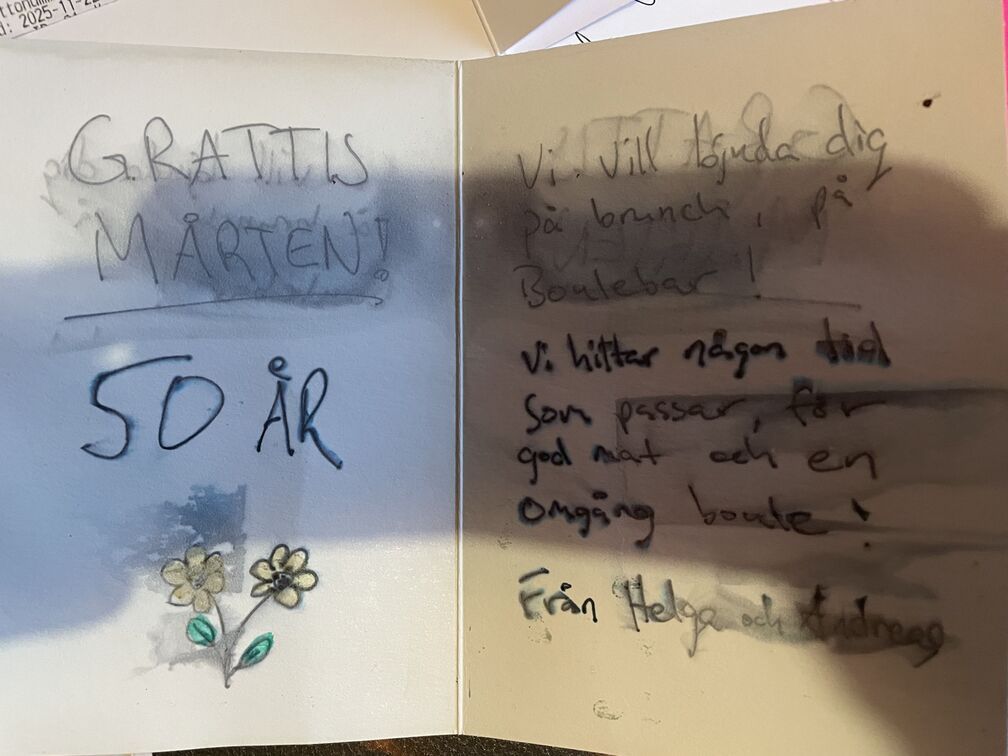 2025-11-2
GRATTIS
MÅRTEN!
50 ÅR
Vi vill bjuda dig
på brunch, på
Boulebar!
Vi hittar någon tid
som passar, för
god mat och en
omgång boule!
Från Helga och Andreas